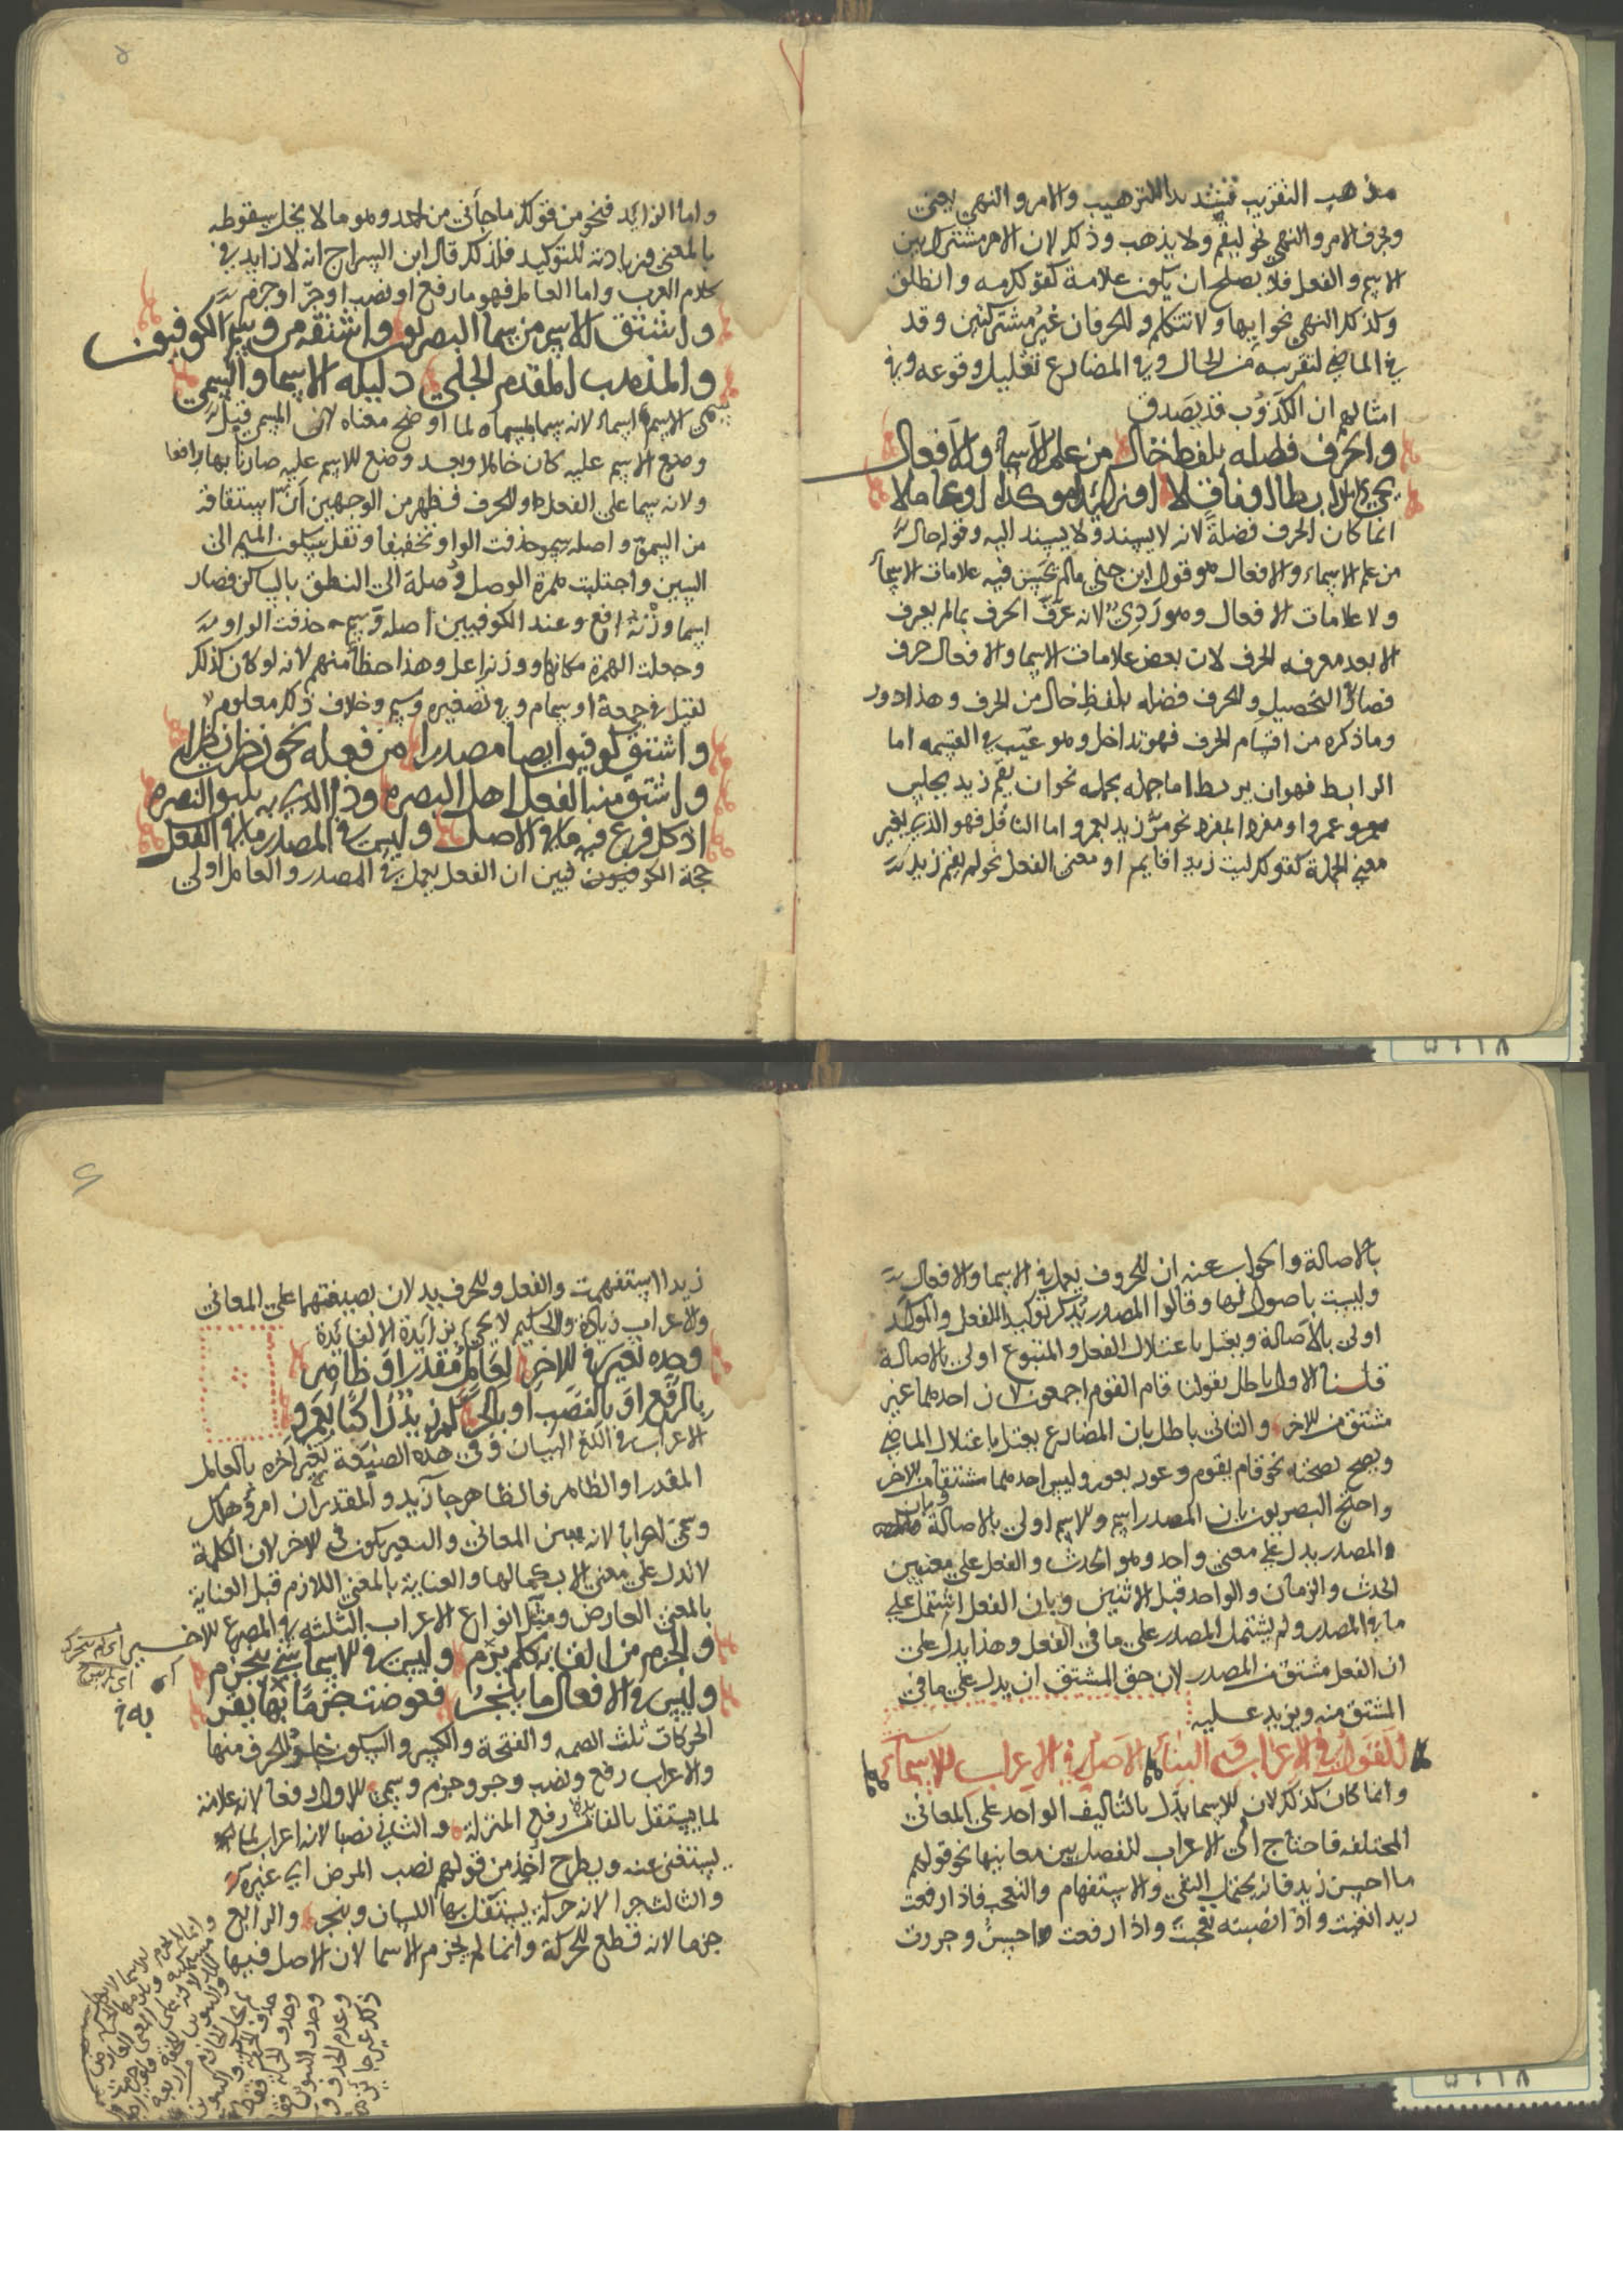 مذهب التقريب فتشديدا للترهيب والامر والنهي يعني
وبحرف الامر والنهي نحو ليقم ولا يذهب وذلك لان الامر مشترك بين
الاسم والفعل فلا يصلح ان يكون علامة كقولك مه وانطلق
وكذلك النهي نحو ايها ولا تتكلم والحرفان غير مشتركين وقد
في الماضي لتقريبه من الحال وفي المضارع تقليل وقوعه وفي
امثالهم ان الكذوب قد يصدق
والحرف فضله بلفظ خال من علم الاسماء والافعال
يجيء رابطا او ناقلا او زائدا موكدا او عاملا
انما كان الحرف فضلة لانه لا يسند ولا يسند اليه وقوله خال
من علم الاسماء والافعال هو قول ابن جني مالم يحسن فيه علامات الاسماء
ولا علامات الافعال وهو ردي لانه عرف الحرف بمالم يعرف
الا بعد معرفه الحرف لان بعض علامات الاسما والافعال حرف
فصار التحصيل والحرف فضله بلفظ خال من الحرف وهذا دور
وما ذكره من اقسام الحرف فهو تداخل وهو عيب في القسمه اما
الرابط فهو ان يربط اما جمله بجمله نحو ان يقم زيد يجلس
عمرو او مفردا بمفرد نحو مر زيد بعمرو اما الناقل فهو الذي يغير
معنى الجملة كقولك ليت زيدا قايم او معنى الفعل نحو لم يقم زيد
واما الزايد فنحو من قولك ما جأني من احد وهو ما لا يخل سقوطه
بالمعنى وزيادته للتوكيد فلذلك قال ابن السراج انه لا زايد في
كلام العرب واما العامل فهو ما رفع او نصب او جر او جزم
واشتق الاسم من سما البصريون واشتقه من وسم الكوفيون
والمذهب المقدم الجلي دليله الاسما والسمي
سمي الاسم اسماء لانه سما بمسماه لما اوضح معناه لان المسمى قبل
وضع الاسم عليه كان خاملا وبعد وضع الاسم عليه صار نابها رافعا
ولانه سما على الفعل والحرف فظهر من الوجهين أن اشتقاقه
من السمو واصله سمو حذفت الواو تخفيفا ونقل سكون الميم الى
السين واجتلبت همزة الوصل وصلة الى النطق بالساكن فصار
اسما وزنه افع وعند الكوفيين اصله وسم حذفت الواو
وجعلت الهمزة مكانها ووزنه اعل وهذا خطأ منهم لانه لو كان كذلك
لقيل في جمعه اوسام وفي تصغيره وسيم وخلاف ذلك معلوم
واشتق كوفيون ايضا مصدرا من فعله نحو نظرت نظرا
واشتق منه الفعل اهل البصره وذا الذي به تليق النصره
اذ كل فرع فيه ما في الاصل وليس في المصدر ما في الفعل
حجة الكوفيون فيين ان الفعل يعمل في المصدر والعامل اولى
بالاصالة والجواب عنه ان الحروف تعمل في الاسما والافعال
وليست باصول لها وقالوا المصدر يذكر توكيدا للفعل والموكد
اولى بالاصالة ويعتل باعتلال الفعل والمتبوع اولى بالاصالة
قلنا الاول باطل بقولنا قام القوم اجمعون لان احدهما غير
مشتق من الاخر والثاني باطل بان المضارع يعتل باعتلال الماضي
ويصح بصحته نحو قام يقوم وعور يعور وليس احدهما مشتقا من الاخر
واحتج البصريون بان المصدر اسم والاسم اولى بالاصالة وبان
المصدر يدل على معنى واحد وهو الحدث والفعل على معنيين
الحدث والزمان والواحد قبل الاثنين وبان الفعل اشتمل على
ما في المصدر ولم يشتمل المصدر على ما في الفعل وهذا يدل على
ان الفعل مشتق من المصدر لان حق المشتق ان يدل على ما في
المشتق منه ويزيد عليه
القول في الاعراب وفي البناء الاصل في الاعراب للاسماء
وانما كان كذلك لان الاسما تدل بالتاليف الواحد على المعاني
المختلفه فاحتاج الى الاعراب للفصل بين معانيها نحو قولهم
ما احسن زيد فانه يحتمل النفي والاستفهام والتعجب فاذا رفعت
زيدا نفيت واذا نصبته تعجبت واذا رفعت احسن وجررت
زيدا استفهمت والفعل والحرف يدلان بصيغتهما على المعاني
والاعراب زيادة والحكيم لا يجيء بزائدة الا لفائدة
وحده تغيير في الاخر لعامل مقدر او ظاهر
بالرفع او بالنصب او بالجر كلم زيد راكبا بعمرو
الاعراب في اللغة البيان وفي هذه الصنيعة تغير آخره بالعامل
المقدر او الظاهر فالظاهر جآ زيد والمقدر ان امرؤ هلك
وسمي اعرابا لانه يبين المعاني والتغيير يكون في الاخر لان الكلمة
لا تدل على معنى الا بكمالها والعناية بالمعنى اللازم قبل العناية
بالمعنى العارض ومثل انواع الاعراب الثلثه في المصرع الاخير
والجزم من القابه كلم يرم وليس في الاسماء شيء ينجزم
وليس في الافعال ما ينجر فعوضت جزما بها يقر
الحركات ثلث الضمه والفتحة والكسر والسكون خلو الحرف منها
والاعراب رفع ونصب وجر وجزم وسمي الاول رفعا لانه علامة
لما يستقل بالفائدة رفع المنزلة والثاني نصبا لانه اعراب لما
يستغنى عنه ويطرح أخذ من قولهم نصب المرض اي غيره
والثالث جرا لانه حركة يستثقل بها اللسان وينجر والرابع
جزما لانه قطع للحركة وانما لم يجزم الاسما لان الاصل فيها